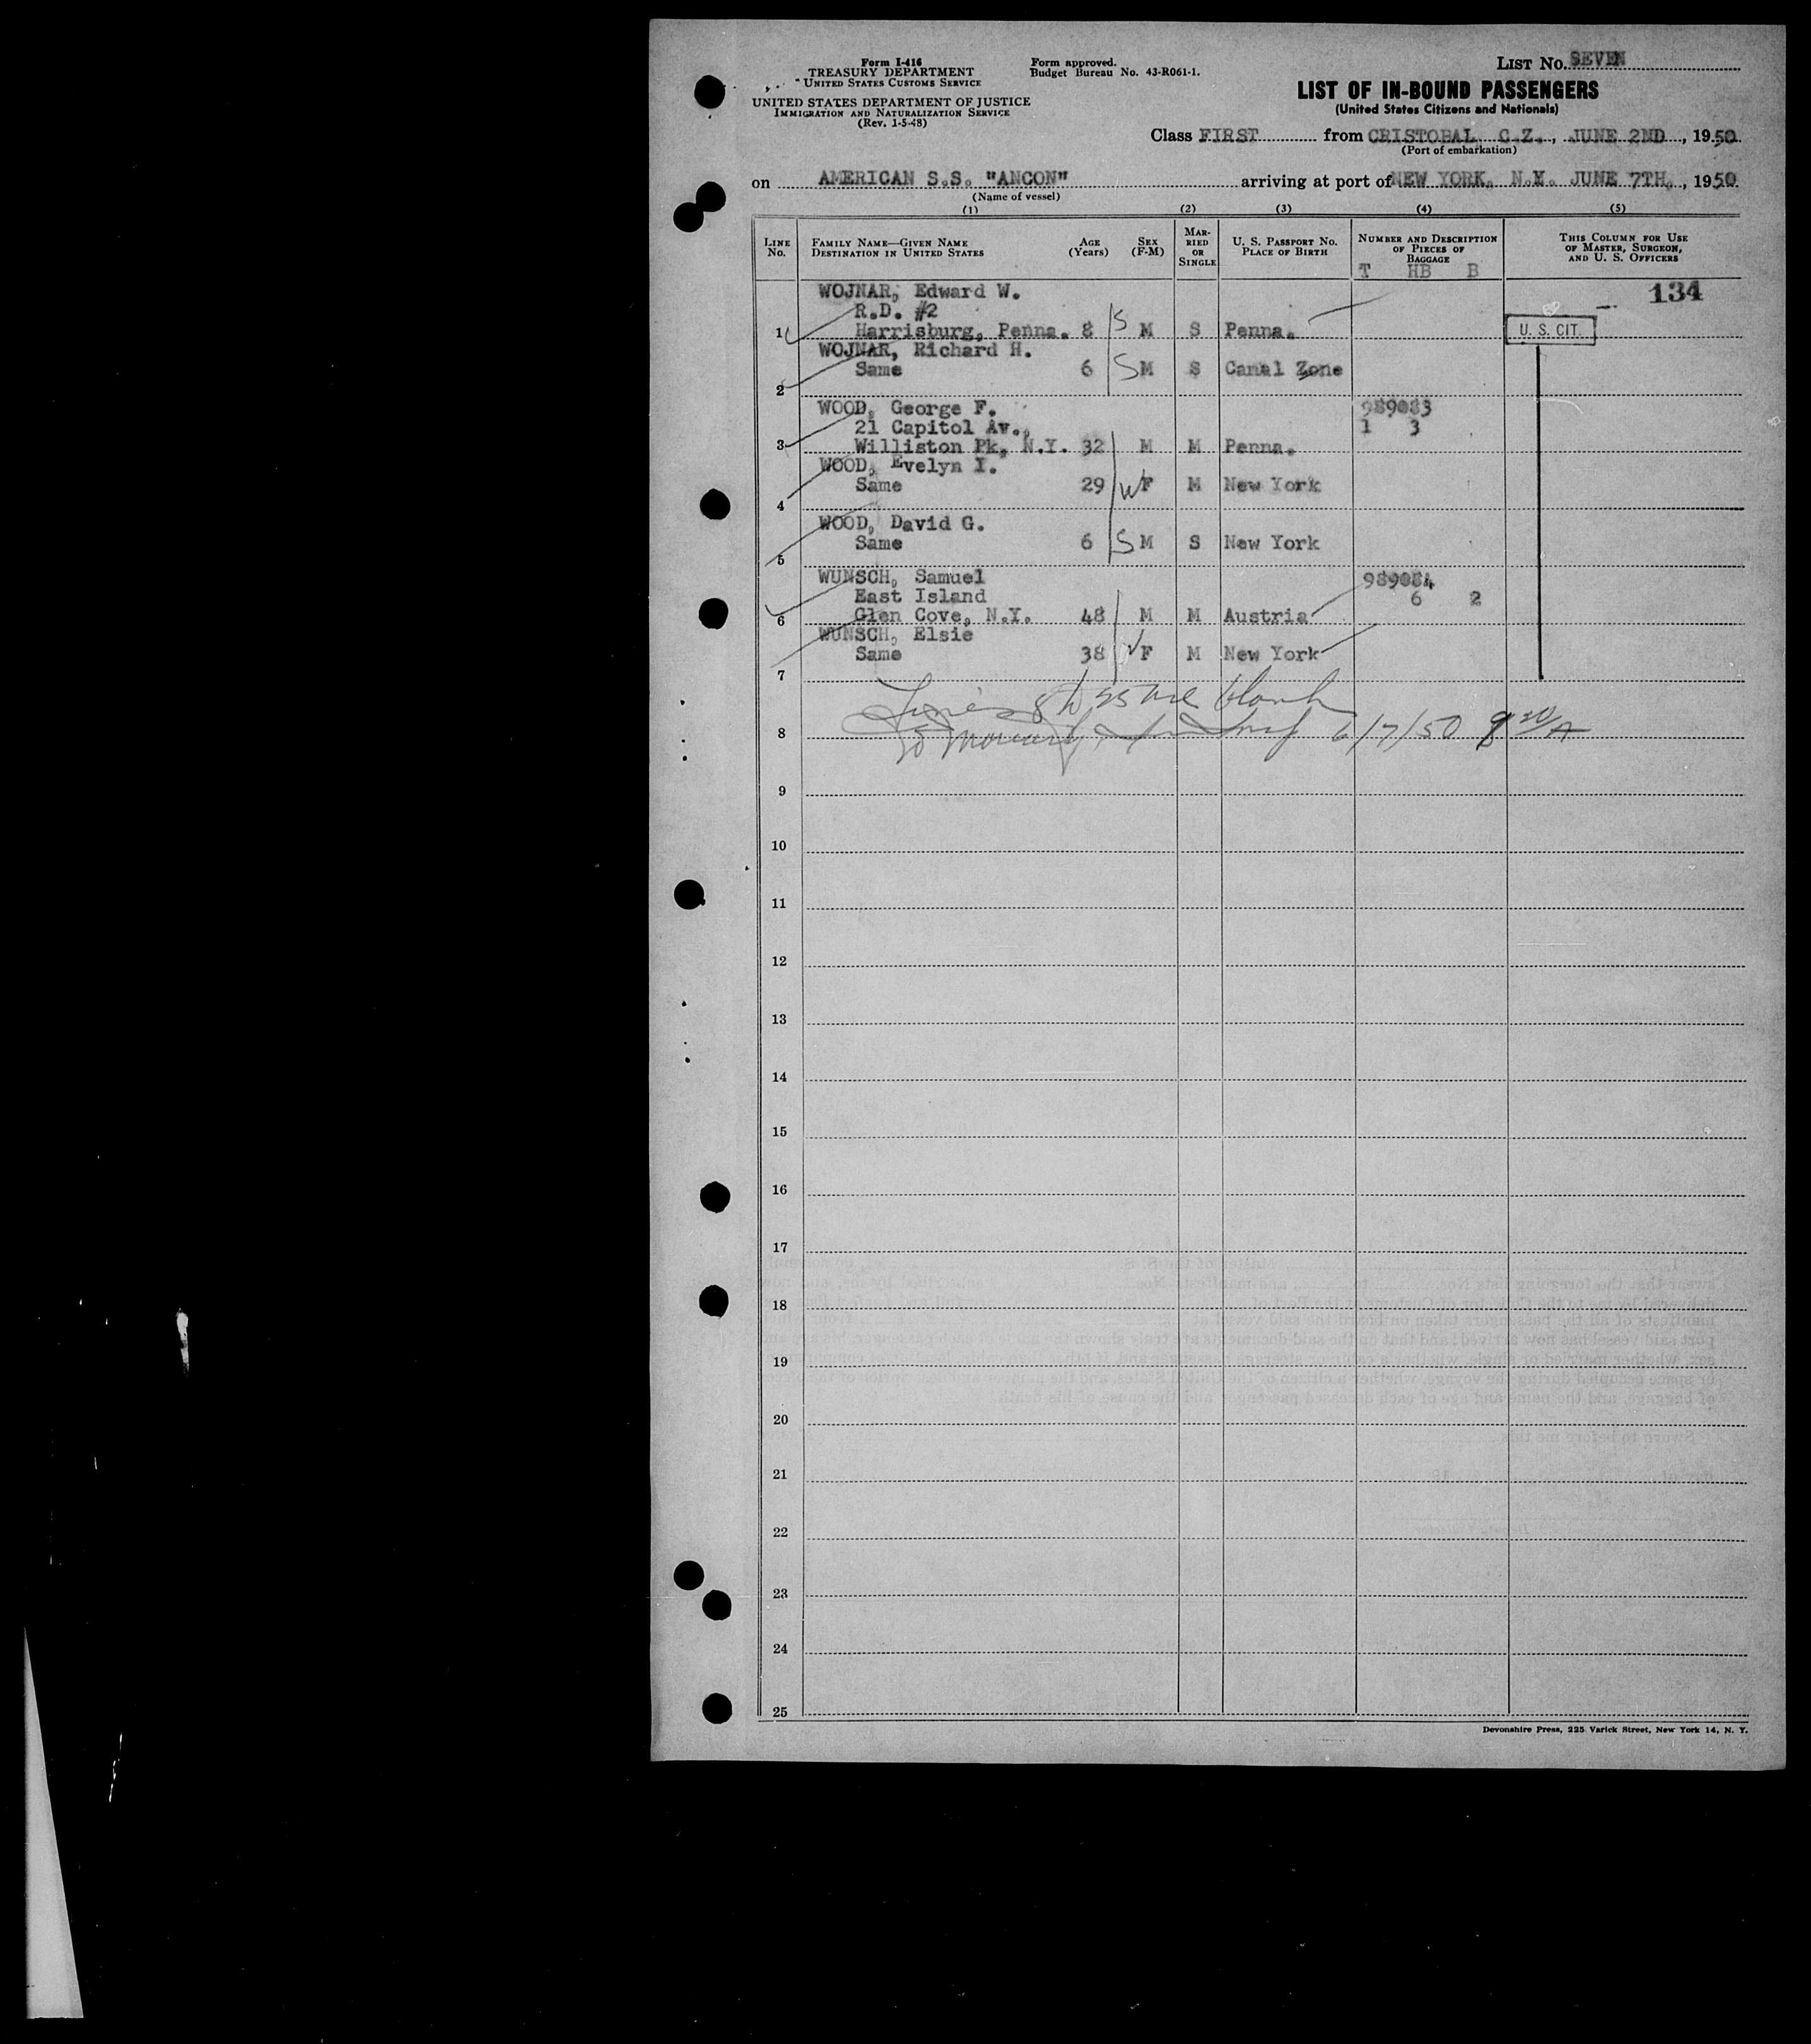 Form I-416
TREASURY DEPARTMENT
UNITED STATES CUSTOMS SERVICE
UNITED STATES DEPARTMENT OF JUSTICE
IMMIGRATION AND NATURALIZATION SERVICE
(Rev. 1-5-48)
Form approved.
Budget Bureau No. 43-R061-1.
LIST No. SEVEN
LIST OF IN-BOUND PASSENGERS
(United States Citizens and Nationals)
Class FIRST from CRISTOBAL C.Z., JUNE 2ND, 1950
(Port of embarkation)
on AMERICAN S.S. "ANCON" arriving at port of NEW YORK, N.Y. JUNE 7TH, 1950
(Name of vessel)
(1) (2) (3) (4) (5)
LINE No.
FAMILY NAME—GIVEN NAME
DESTINATION IN UNITED STATES
AGE (Years)
SEX (F-M)
MAR-RIED OR SINGLE
U. S. PASSPORT NO.
PLACE OF BIRTH
NUMBER AND DESCRIPTION OF PIECES OF BAGGAGE
T HB B
THIS COLUMN FOR USE OF MASTER, SURGEON, AND U. S. OFFICERS
WOJNAR, Edward W. 134
R.D. #2
1 Harrisburg, Penna. 8 S M S Penna. U. S. CIT.
WOJNAR, Richard H.
Same 6 S M S Canal Zone
2
WOOD, George F. 989083
21 Capitol Av., 1 3
3 Williston Pk, N.Y. 32 M M Penna.
WOOD, Evelyn I.
Same 29 W F M New York
4
WOOD, David G.
Same 6 S M S New York
5
WUNSCH, Samuel 989084
East Island 6 2
6 Glen Cove, N.Y. 48 M M Austria
WUNSCH, Elsie
Same 38 F M New York
7
Lines 8 to 25 are blank
8 6/7/50
9
10
11
12
13
14
15
16
17
18
19
20
21
22
23
24
25
Devonshire Press, 225 Varick Street, New York 14, N. Y.